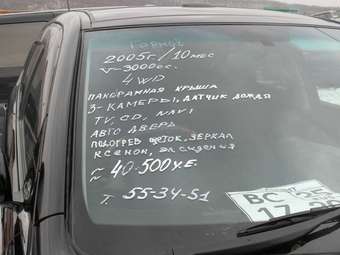 2005г/10 мес
V-3000сс.
4WD
ПАНОРАМНАЯ КРЫША
3-КАМЕРЫ, ДАТЧИК ДОЖДЯ
TV, CD, NAVI
АВТО ДВЕРЬ
ПОДОГРЕВ ЩЕТОК, ЗЕРКАЛ
КСЕНОН, ЭЛ. СИДЕНИЯ
~ 40-500 У.Е.
Т. 55-34-51
ВС